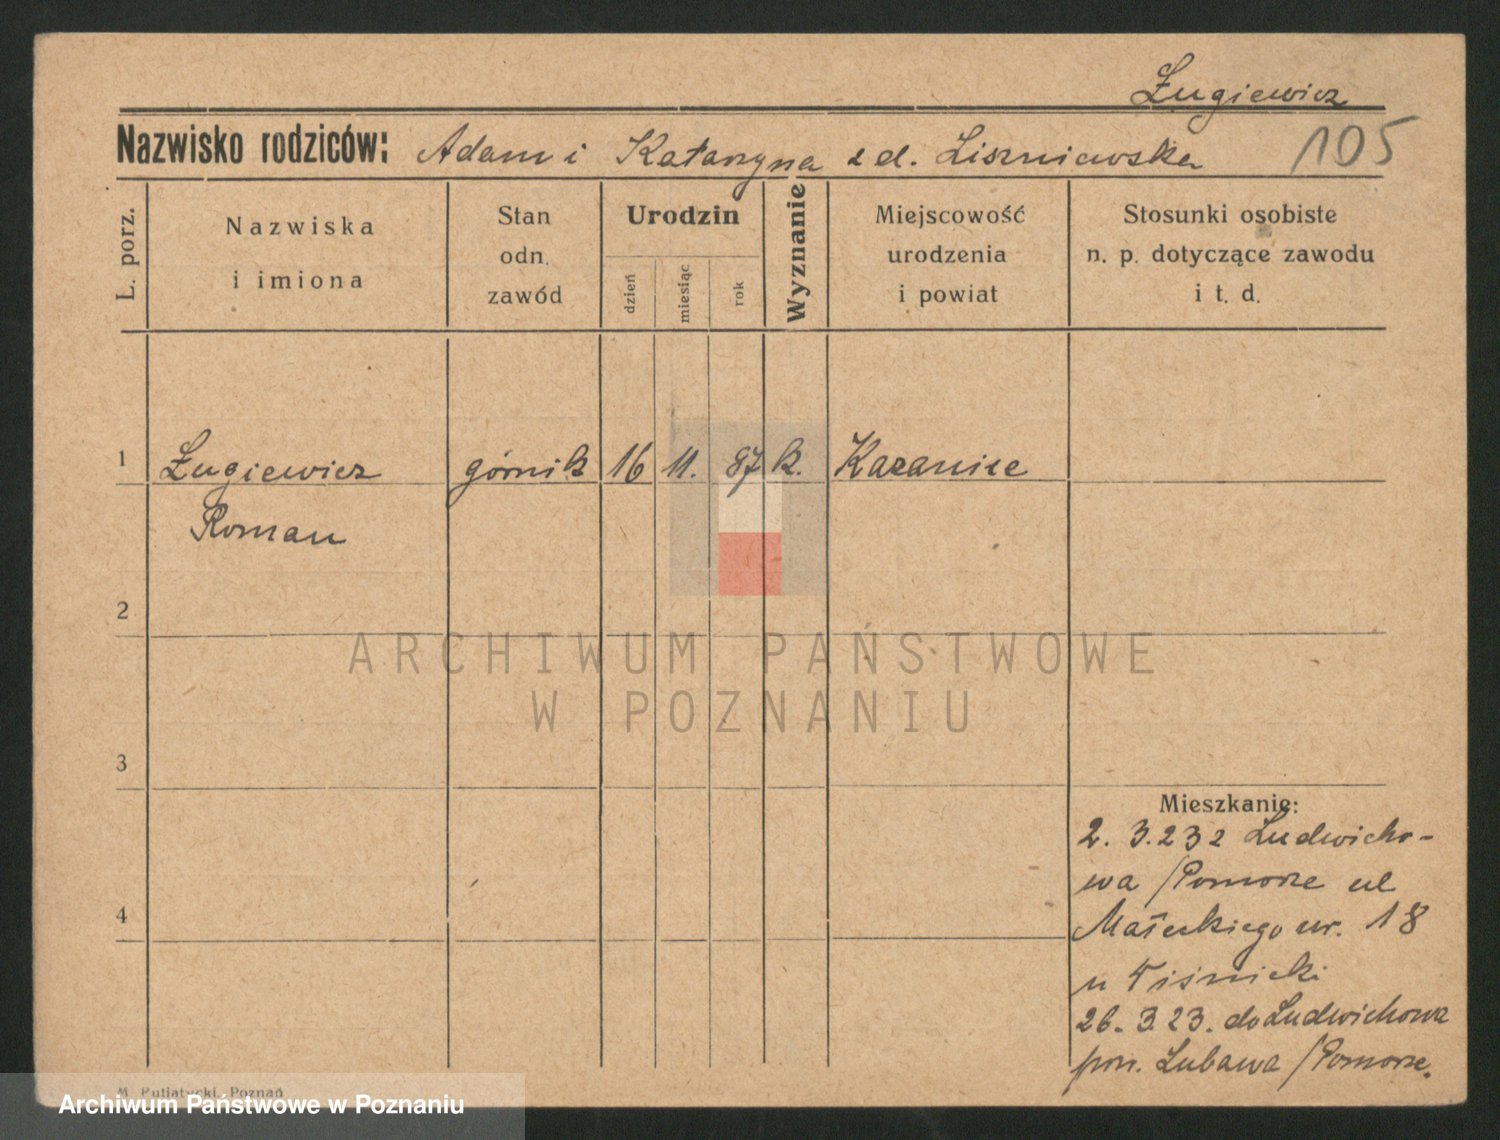 Żugiewicz
Nazwisko rodziców: Adam i Katarzyna z d. Liszniewska
105
L. porz.
Nazwiska
i imiona
Stan
odn.
zawód
Urodzin
dzień
miesiąc
rok
Wyznanie
Miejscowość
urodzenia
i powiat
Stosunki osobiste
n. p. dotyczące zawodu
i t. d.
1 Żugiewicz górnik 16 11. 87 k. Kazanice
Roman
2
ARCHIWUM PAŃSTWOWE
W POZNANIU
3
Mieszkanie:
2. 3.232 Ludwicho-
wa /Pomorze ul
4
Małeckiego nr. 18
u
26. 3.23. do Ludwichowa
pow. Lubawa /Pomorze.
M. Putiatycki, Poznań
Archiwum Państwowe w Poznaniu